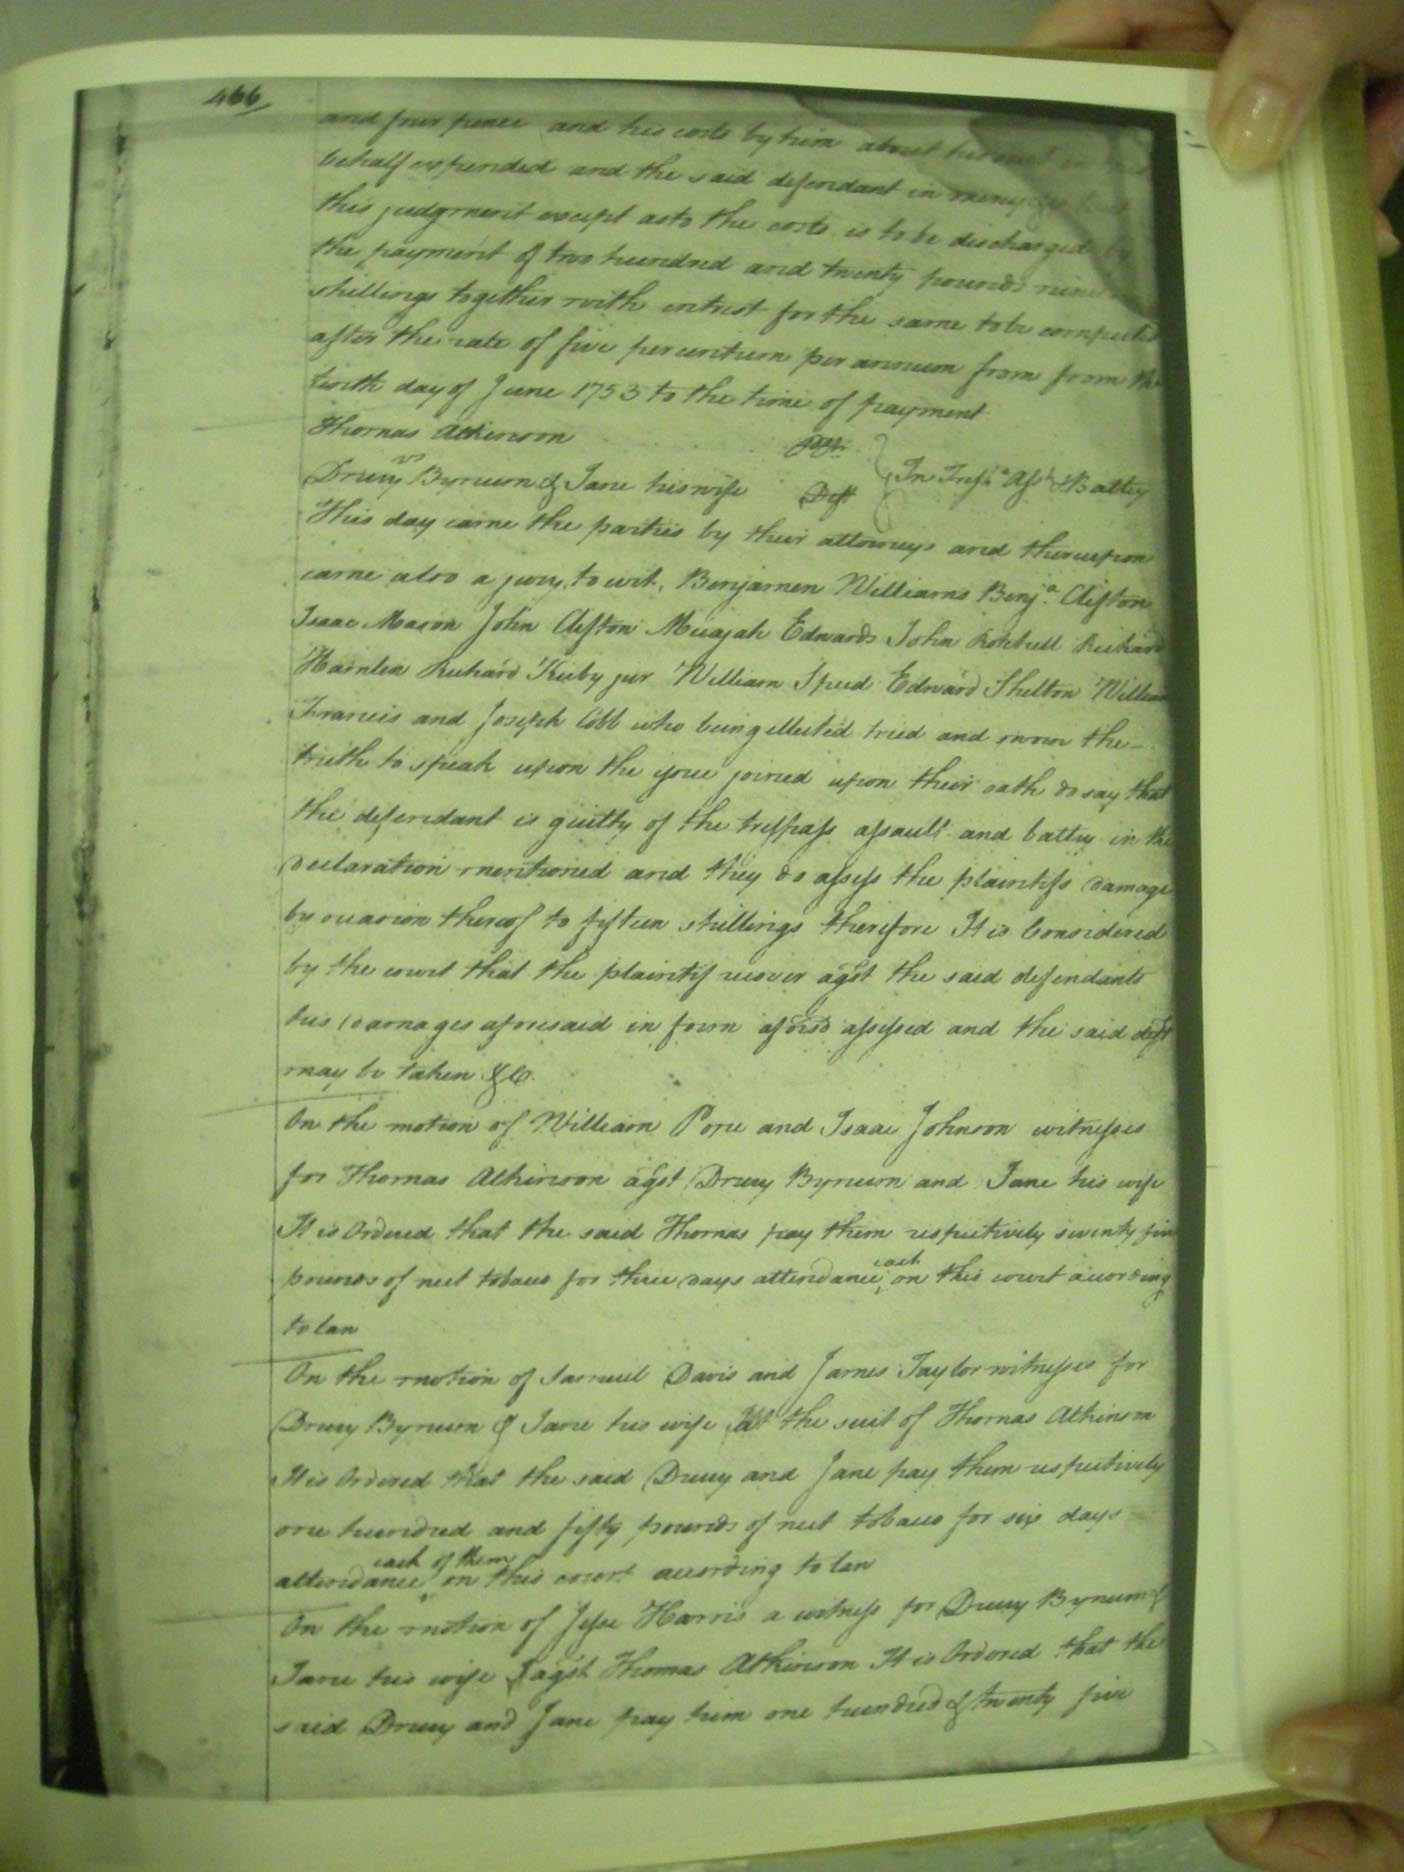 466
and four pence and his costs by him about his suit in
behalf expended and the said defendant in mercy &c
this judgment except as to the costs is to be discharged by
the payment of two hundred and twenty pounds nine
shillings together with intrest for the same to be computed
after the rate of five per centum per annum from from the
tenth day of June 1753 to the time of payment
Thomas Atkinson Plt
vs
Drury Bynum & Jane his wife Deft } In Tresps Asst & Battry
This day came the parties by their attorneys and thereupon
came also a jury, to wit, Benjamen Williams Benja. Clifton
Isaac Mason John Clifton Micajah Edwards John Richard
Harnlea Richard Kirby jur William Speed Edward Shelton William
Francis and Joseph Cobb who being ellected tried and sworn the
truth to speak upon the issue joined upon their oath do say that
the defendant is guilty of the trespass assault and battry in the
declaration mentioned and they do assess the plaintifs damage
by occasion thereof to fifteen shillings therefore It is Considered
by the court that the plaintif recover agst the said defendants
his damages aforesaid in form aforsd assessed and the said deft
may be taken &C.
On the motion of William Pope and Isaac Johnson witnesses
for Thomas Atkinson agst Drury Bynum and Jane his wife
It is Ordered that the said Thomas pay them respectively seventy five
pounds of neet tobacco for three days attendance each on this court according
to law
On the motion of Samuel Davis and James Taylor witnesses for
Drury Bynum & Jane his wife at the suit of Thomas Atkinson
It is Ordered that the said Drury and Jane pay them respectively
one hundred and fifty pounds of neet tobacco for six days
attendance each of them on this court according to law
On the motion of Jesse Harris a witness for Drury Bynum &
Jane his wife agst Thomas Atkinson It is Ordered that the
said Drury and Jane pay him one hundred & twenty five